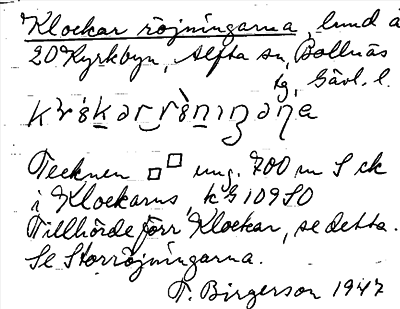 Klockar röjningarna, lund å
20 Kyrkbyn, Alfta sn, Bollnäs
tg, Gävl. l.
Tecknen □□ ung. 700 m S ck
i Klockarns, kg 109 SO
Tillhörde förr Klockar, se detta.
Se Storröjningarna.
T. Birgerson 1947